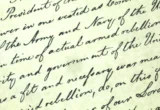 President of
power in me vested as Com
the Army and Navy of the U
time of actual armed rebellion
ity and government of the Un
as a fit and necessary war meas
id rebellion, do, on this